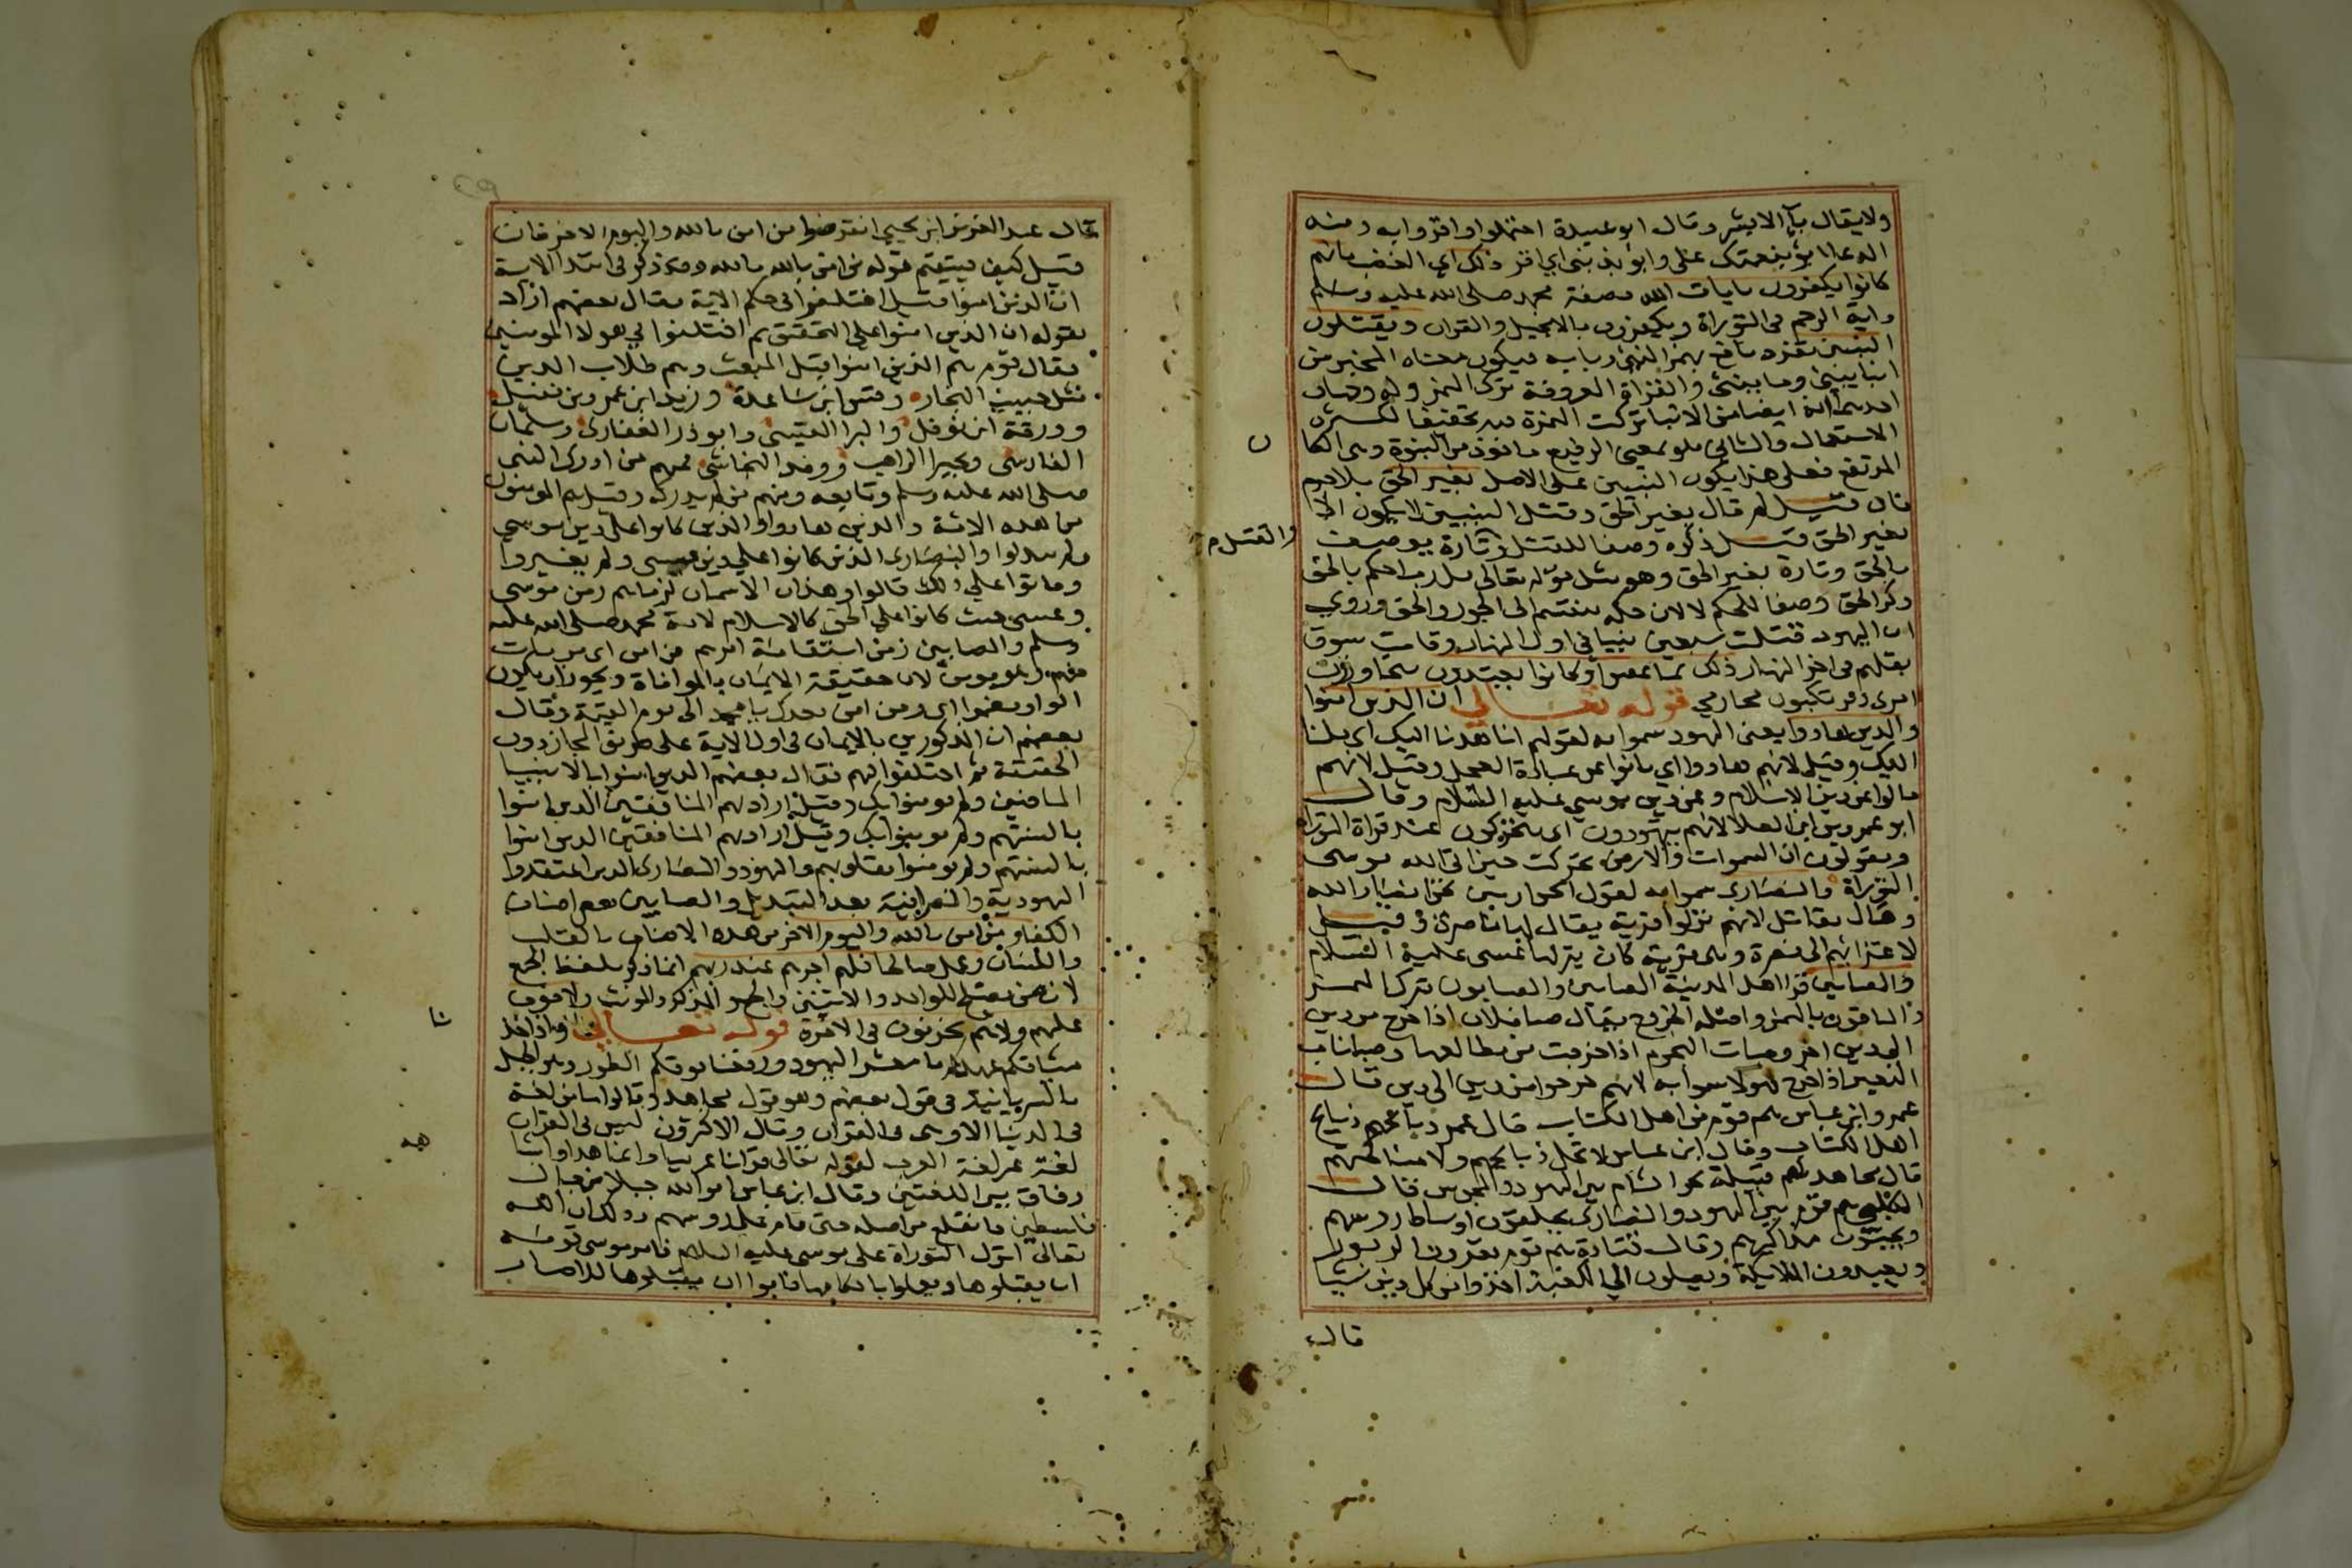 ولا يقال باء الا بشر وقال ابو عبيدة احتملوا واقروا به ومنه
الدعا ابوء بنعمتك على وابوء بذنبى اي اقر ذلك اي الغضب بانهم
كانوا يكفرون بايات الله بصفة محمد صلى الله عليه وسلم
واية الرجم فى التوراة ويكفرون بالانجيل والقران ويقتلون
النبيين تفرد نافع بهمز النبئ وبابه فيكون معناه المخبر من
انبا ينبئ ونبا ينبئ والقراة المعروفة ترك الهمز وله وجهان
احدهما انه ايضا من الانبا تركت الهمزة فيه تخفيفا لكثرة
الاستعمال والثانى هو بمعنى الرفيع ماخوذ من النبوة وهى المكا
ن
المرتفع فعلى هذا يكون النبيين على الاصل بغير الحق بلا جرم
فان قيل لم قال بغير الحق وقتل النبيين لا يكون الا
بغير الحق قيل ذكره وصفا للقتل والقتل تارة يوصف
بالحق وتارة بغير الحق وهو مثل قوله تعالى قل رب احكم بالحق
ذكر الحق وصفا للحكم لا لان حكمه ينقسم الى الجور والحق وروي
ان اليهود قتلت سبعين نبيا فى اول النهار وقامت سوق
بقلهم فى اخر النهار ذلك بما عصوا وكانوا يعتدون يتجاوزون
امرى ويرتكبون محارمي قوله تعالى ان الذين امنوا
والذين هادوا يعنى اليهود سموا به لقولهم انا هدنا اليك اى ملنا
اليك وقيل لانهم هادوا اي تابوا عن عبادة العجل وقيل لانهم
مالوا عن دين الاسلام وعن دين موسي عليه السلام وقال
ابو عمرو بن العلا لانهم يتهودون اى يتحركون عند قراة التوراة
ويقولون ان السموات والارض تحركت حين اتى الله موسى
التوراة والنصارى سموا به لقول الحواريين نحن انصار الله
وقال مقاتل لانهم نزلوا قرية يقال لها ناصرة وقيل
لاعتزائهم الى نصرة وهى قرية كان ينزلها عيسى عليه السلام
والصابين قرا اهل المدينة الصابين والصابون بترك الهمز
والباقون بالهمز واصله الخروج يقال صبا فلان اذا خرج من دين
الى دين اخر وصبات النجوم اذا خرجت من مطالعها وصبا ناب
البعير اذا خرج فهولا سموا به لانهم خرجوا من دين الى دين قال
عمر وابن عباس هم قوم من اهل الكتاب قال عمر ذبائحهم ذبايح
اهل الكتاب وقال ابن عباس لا تحل ذبايحهم ولا مناكحتهم
قال مجاهد هم قبيلة نحو الشام بين اليهود والمجوس قال
الكلبي هم قوم بين اليهود والنصارى يحلقون اوساط روسهم
ويجبون مذاكيرهم وقال قتادة هم قوم يقرون الزبور
ويعبدون الملايكة ويصلون الي الكعبة اخذوا من كل دين شيا
قال
قال عبد العزيز ابن يحيي انقرضوا من امن بالله واليوم الاخر فان
قيل كيف يستقيم قوله من امن بالله وقد ذكر فى ابتدا الاية
ان الذين امنوا قيل اختلفوا فى حكم الاية فقال بعضهم اراد
بقوله ان الذين امنوا على التحقيق ثم اختلفوا في هولا المومنين
فقال قوم هم الذين امنوا قبل المبعث وهم طلاب الدين
مثل حبيب النجار وقس ابن ساعدة وزيد ابن عمرو بن نفيل
وورقة ابن نوفل والبرا الشنى وابو ذر الغفارى وسلمان
الفارسى وبحيرا الراهب ووفد النجاشى فمنهم من ادرك النبى
صلى الله عليه وسلم وتابعه ومنهم من لم يدركه وقيل هم المومنون
من هذه الامة والذين هادوا والذين كانوا على دين موسي
ولم يبدلوا والنصارى الذين كانوا على دين عيسى ولم يغيروا
وماتوا علي ذلك قالوا وهذان الاسمان لزماهم زمن موسى
وعيسى حيث كانوا على الحق كالاسلام لامة محمد صلى الله عليه
وسلم والصابين زمن استقامة امرهم من امن اى من مات
منهم وهو مومن لان حقيقة الايمان بالموافاة ويجوز ان يكون
الواو مضمرا اى ومن امن بعدك يا محمد الى يوم القيمة وقال
بعضهم ان المذكورين بالايمان فى اول الاية على طريق المجاز دون
الحقيقة ثم اختلفوا فيهم فقال بعضهم الذين امنوا بالانبيا
الماضين ولم يومنوا بك وقيل اراد بهم المنافقين الذين امنوا
بالسنتهم ولم يومنوا بك وقيل اراد بهم المنافقين الذين امنوا
بالسنتهم ولم يومنوا بقلوبهم واليهود والنصارى الذين اعتقدوا
اليهودية والنصرانية بعد التبديل والصابين بعض اصناف
الكفار من امن بالله واليوم الاخر من هذه الاصناف بالقلب
واللسان وعمل صالحا فلهم اجرهم عند ربهم انما ذكر بلفظ الجمع
لان من يصلح للواحد والاثنين والجمع والمذكر والمونث ولا خوف
عليهم ولا هم يحزنون فى الاخرة قوله تعالى واذ اخذ
نا
ميثاقكم عهدكم يا معشر اليهود ورفعنا فوقكم الطور وهو الجبل
بالسريانية فى قول بعضهم وهو قول مجاهد وقالوا ما من لغة
فى الدنيا الا وهى فى القران وقال الاكثرون ليس فى القران
لغة غير لغة العرب لقوله تعالى قرانا عربيا وانما هذا واشبا
هه
وفاق بين اللغتين وقال ابن عباس امر الله جبلا من جبال
فلسطين فانقلع من اصله حتى قام على روسهم وذلك ان الله
تعالى انزل التوراة على موسى عليه السلام فامر موسى قومه
ان يقبلوها ويعملوا باحكامها فابوا ان يقبلوها للاصار